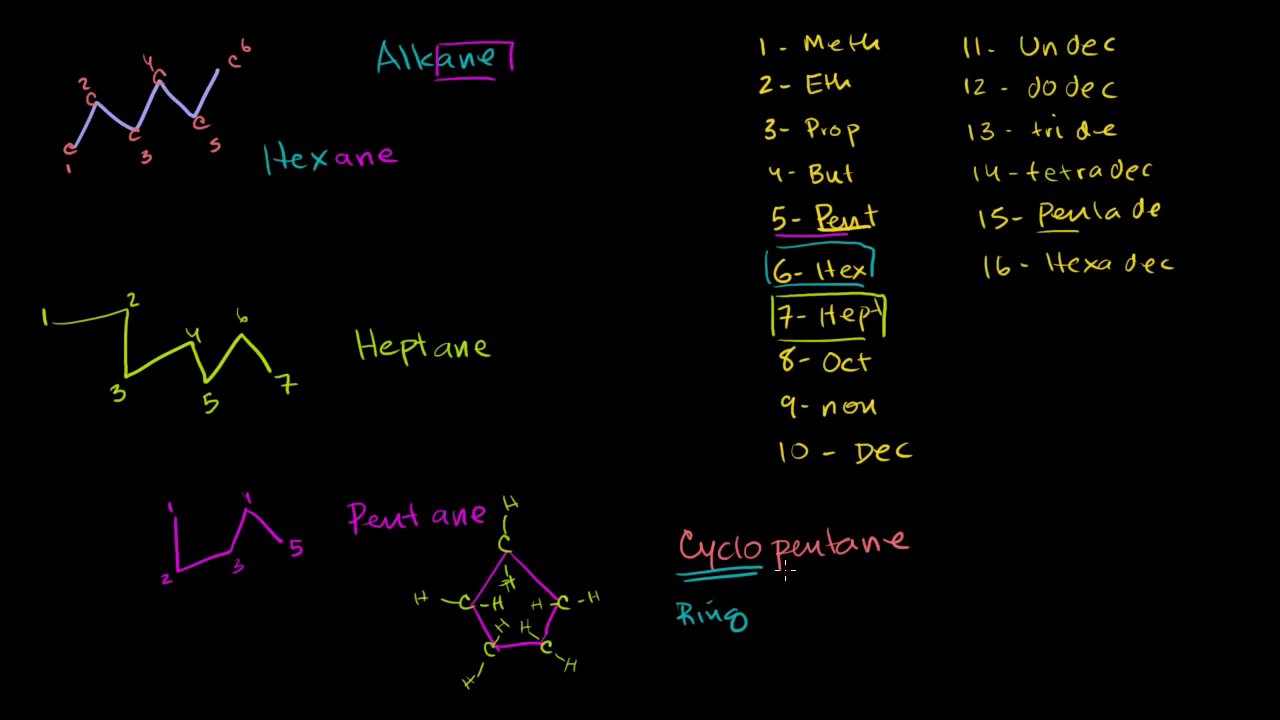 Alkane
C 1
C 2
C 3
C 4
C 5
C 6
Hexane
1 2 3 4 5 6 7
Heptane
1 2 3 4 5
Pentane
H
C
H
H C H H C H
H H
C C
H H
1 - Meth
2 - Eth
3 - Prop
4 - But
5 - Pent
6 - Hex
7 - Hept
8 - Oct
9 - non
10 - Dec
11 - Undec
12 - dodec
13 - tride
14 - tetradec
15 - Pentade
16 - Hexadec
Cyclo pentane
Ring